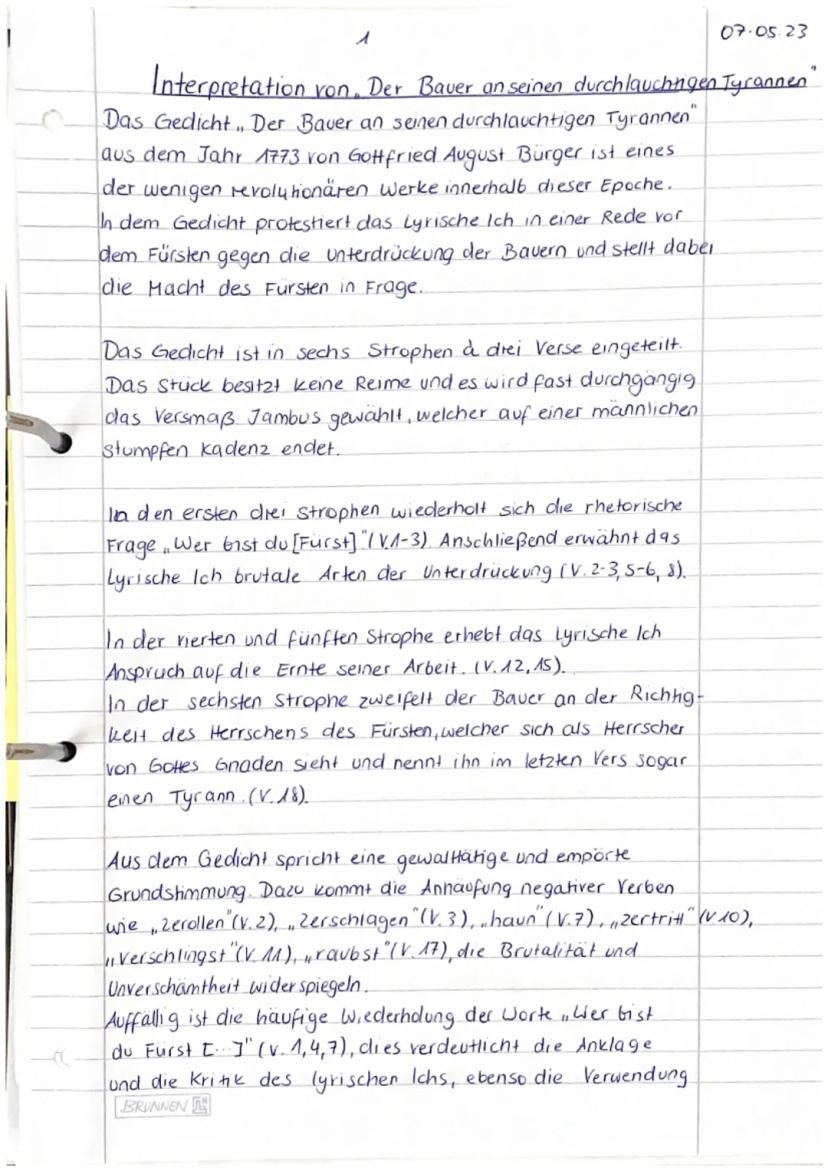 1
07.05.23
Interpretation von „Der Bauer an seinen durchlauchtigen Tyrannen"
Das Gedicht „Der Bauer an seinen durchlauchtigen Tyrannen"
aus dem Jahr 1773 von Gottfried August Bürger ist eines
der wenigen revolutionären Werke innerhalb dieser Epoche.
In dem Gedicht protestiert das Lyrische Ich in einer Rede vor
dem Fürsten gegen die Unterdrückung der Bauern und stellt dabei
die Macht des Fürsten in Frage.
Das Gedicht ist in sechs Strophen à drei Verse eingeteilt.
Das Stück besitzt keine Reime und es wird fast durchgängig
das Versmaß Jambus gewählt, welcher auf einer männlichen
stumpfen Kadenz endet.
In den ersten drei Strophen wiederholt sich die rhetorische
Frage „Wer bist du [Fürst]" (V.1-3) Anschließend erwähnt das
Lyrische Ich brutale Arten der Unterdrückung (V. 2-3, 5-6, 8).
In der vierten und fünften Strophe erhebt das Lyrische Ich
Anspruch auf die Ernte seiner Arbeit. (V. 12, 15).
In der sechsten Strophe zweifelt der Bauer an der Richtig-
keit des Herrschens des Fürsten, welcher sich als Herrscher
von Gottes Gnaden sieht und nennt ihn im letzten Vers sogar
einen Tyrann. (V. 18).
Aus dem Gedicht spricht eine gewalttätige und empörte
Grundstimmung. Dazu kommt die Anhäufung negativer Verben
wie „zerollen" (V. 2), „zerschlagen" (V. 3), „haun" (V. 7), „zertritt" (V 10),
„verschlingst" (V. 11), „raubst" (V. 17), die Brutalität und
Unverschämtheit widerspiegeln.
Auffällig ist die häufige Wiederholung der Worte „Wer bist
du Fürst [...]" (V. 1,4,7), dies verdeutlicht die Anklage
und die Kritik des lyrischen Ichs, ebenso die Verwendung
BRUNNEN